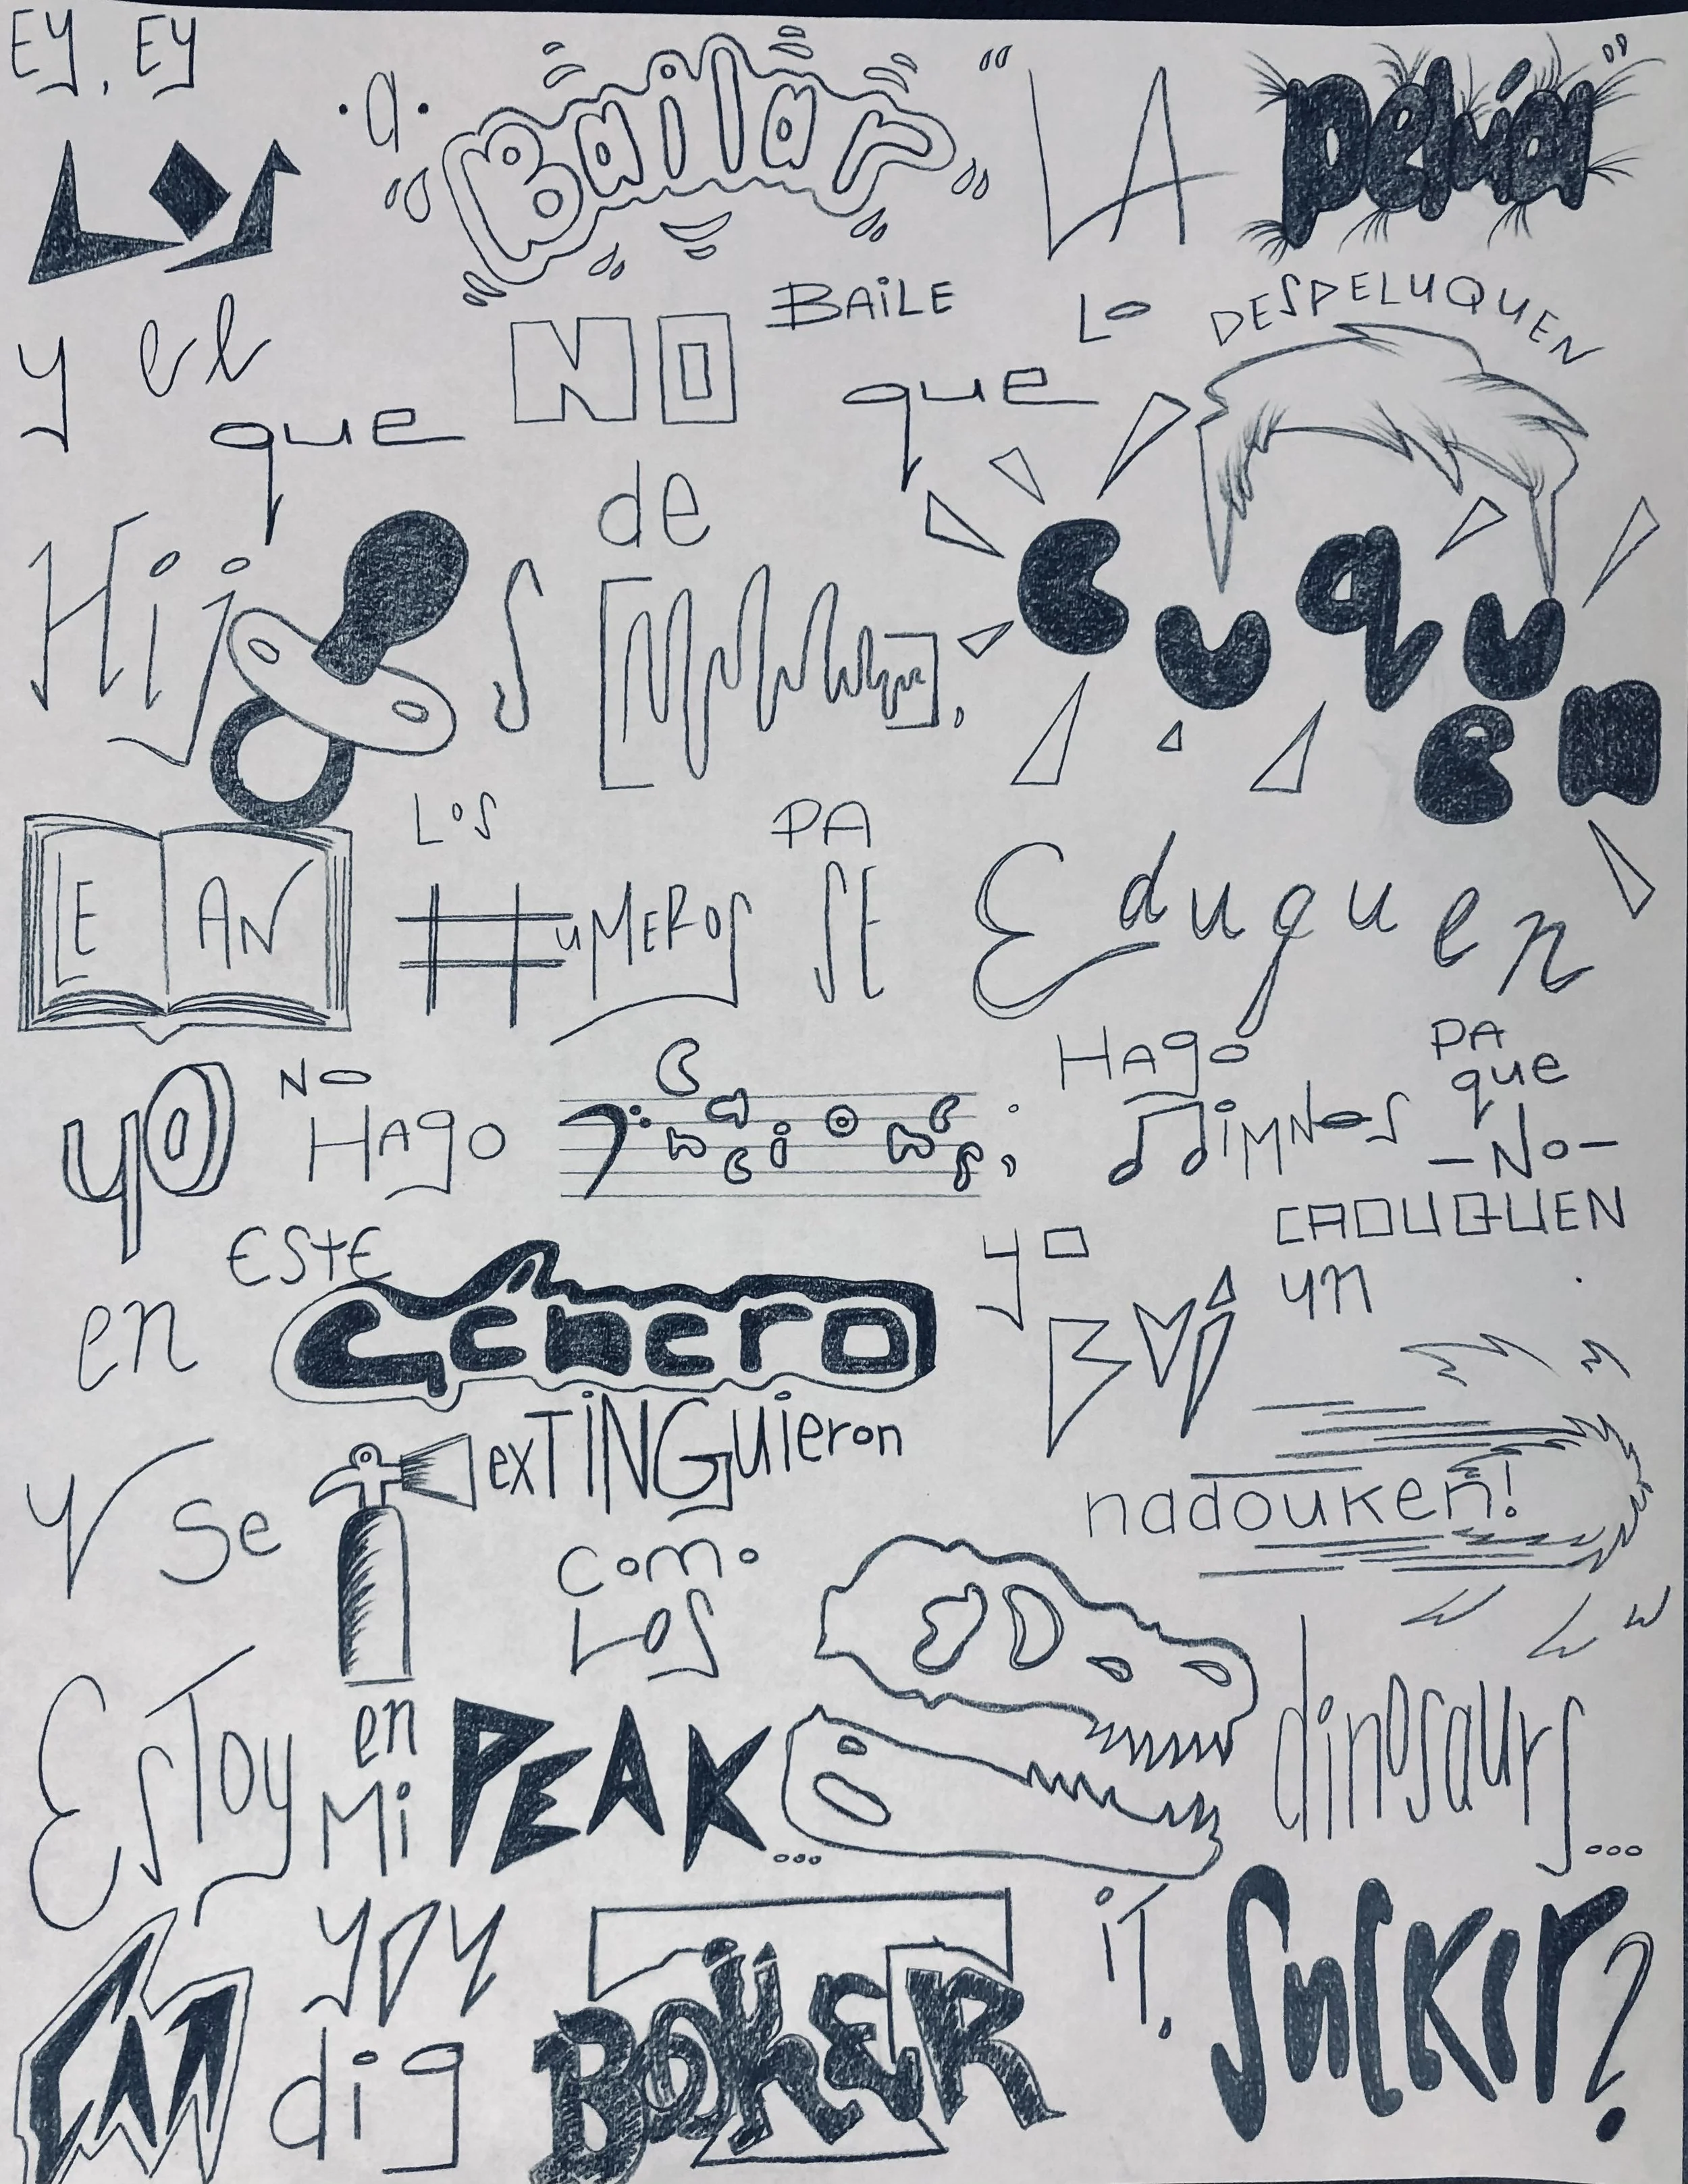 EY, EY
LOS a Bailar "LA pelúa"
y el que NO BAiLE que LO DESPELUQUEN
Hijos de CuquEn
LEAN LOS #uMEROS PA SE Eduquen
yO NO HAgo canciones; HAgo HiMNOS PA que -No- CADUQUEN
en ESTE Género yo FUi un nadouken!
y Se exTiNGuieron como LOS dinosaurs...
EsToy en Mi PEAK...
CAN yoy dig BOKER iT, Sucker?